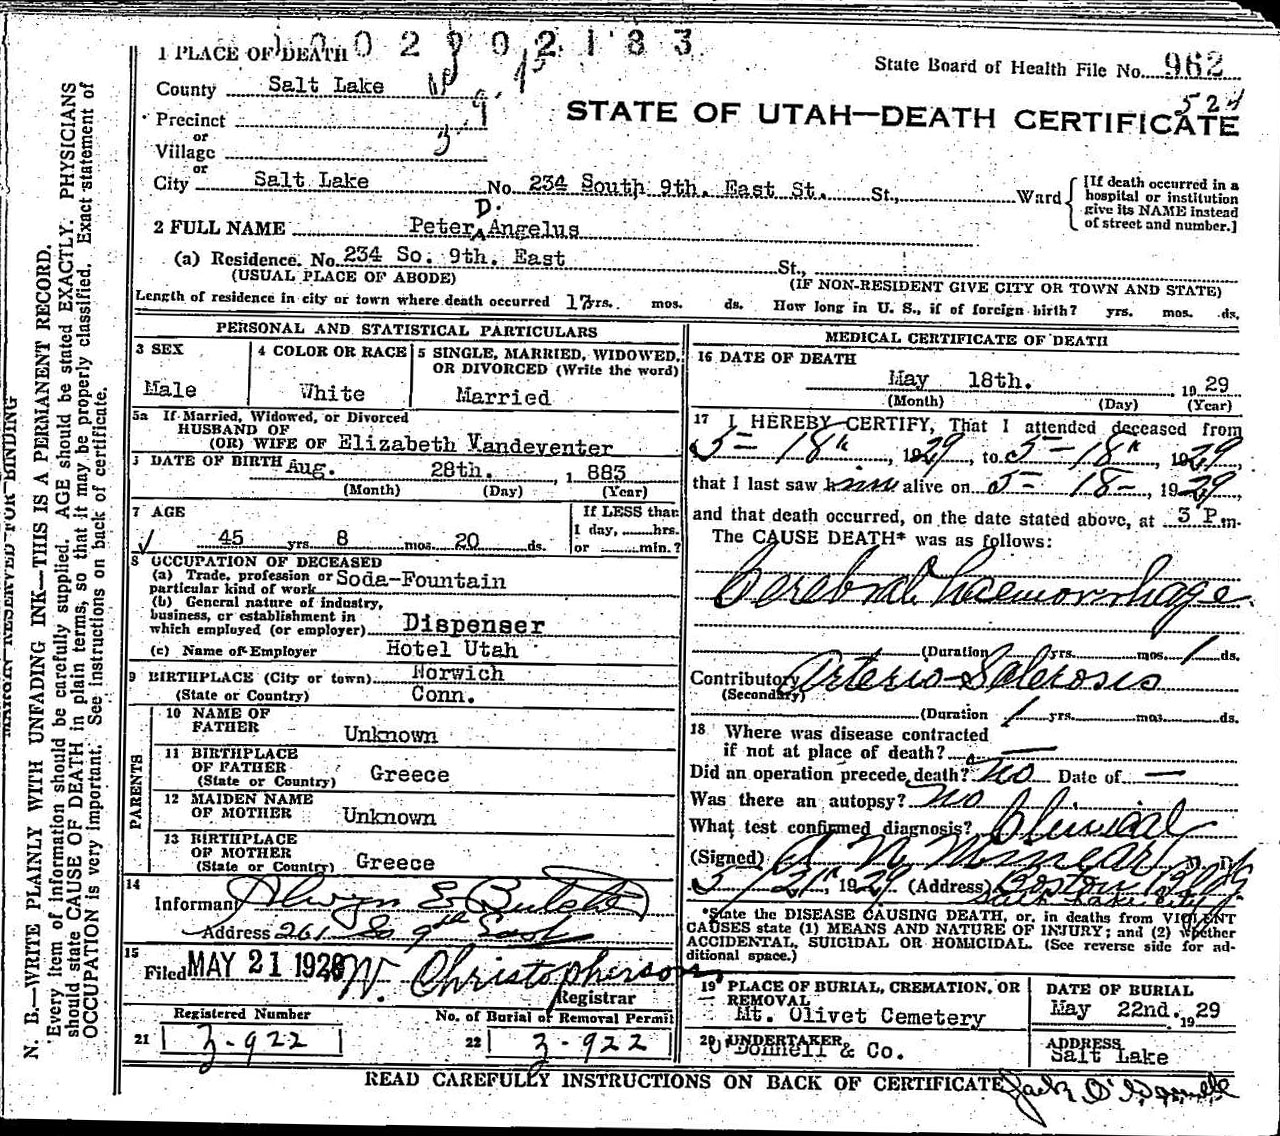 1002902183
1 PLACE OF DEATH
State Board of Health File No. 962
524
County Salt Lake
STATE OF UTAH—DEATH CERTIFICATE
Precinct
or
Village
or
City Salt Lake No. 234 South 9th. East St. St., Ward
[If death occurred in a hospital or institution give its NAME instead of street and number.]
D.
2 FULL NAME Peter Angelus
(a) Residence. No. 234 So. 9th. East St.,
(USUAL PLACE OF ABODE) (IF NON-RESIDENT GIVE CITY OR TOWN AND STATE)
Length of residence in city or town where death occurred 17 yrs. mos. ds. How long in U. S., if of foreign birth? yrs. mos. ds.
PERSONAL AND STATISTICAL PARTICULARS
3 SEX
Male
4 COLOR OR RACE
White
5 SINGLE, MARRIED, WIDOWED, OR DIVORCED (Write the word)
Married
5a If Married, Widowed, or Divorced
HUSBAND OF
(OR) WIFE OF Elizabeth Vandeventer
DATE OF BIRTH Aug. 28th. , 1 883
(Month) (Day) (Year)
7 AGE
45 yrs. 8 mos. 20 ds.
If LESS than
1 day, hrs.
or min.?
8 OCCUPATION OF DECEASED
(a) Trade, profession or
particular kind of work Soda-Fountain
(b) General nature of industry,
business, or establishment in
which employed (or employer) Dispenser
(c) Name of Employer Hotel Utah
9 BIRTHPLACE (City or town) Norwich
(State or Country) Conn.
PARENTS
10 NAME OF
FATHER Unknown
11 BIRTHPLACE
OF FATHER
(State or Country) Greece
12 MAIDEN NAME
OF MOTHER Unknown
13 BIRTHPLACE
OF MOTHER
(State or Country) Greece
14
Informant Alwyn E
Address 261 So 9th East
15
Filed MAY 21 1929 W. Christopherson
Registrar
Registered Number
21 3-922
No. of Burial or Removal Permit
22 3-922
MEDICAL CERTIFICATE OF DEATH
16 DATE OF DEATH
May 18th. 19 29
(Month) (Day) (Year)
17 I HEREBY CERTIFY, That I attended deceased from
5-18th, 1929, to 5-18th, 1929
that I last saw him alive on 5-18-, 1929,
and that death occurred, on the date stated above, at 3 P.m.
The CAUSE DEATH* was as follows:
Cerebral haemorrhage
(Duration yrs. mos. 1 ds.
Contributory Arterio-Sclerosis
(Secondary)
(Duration 1 yrs. mos. ds.
18 Where was disease contracted
if not at place of death? —
Did an operation precede death? no Date of —
Was there an autopsy? no
What test confirmed diagnosis? Clinical
(Signed) M. D.
5/21st, 1929 (Address) Boston Bldg
Salt Lake City
*State the DISEASE CAUSING DEATH, or, in deaths from VIOLENT
CAUSES state (1) MEANS AND NATURE OF INJURY; and (2) whether
ACCIDENTAL, SUICIDAL OR HOMICIDAL. (See reverse side for ad-
ditional space.)
19 PLACE OF BURIAL, CREMATION, OR
REMOVAL
Mt. Olivet Cemetery
DATE OF BURIAL
May 22nd. 19 29
20 UNDERTAKER
O'Donnell & Co.
ADDRESS
Salt Lake
READ CAREFULLY INSTRUCTIONS ON BACK OF CERTIFICATE
Jack O'Donnell
MARGIN RESERVED FOR BINDING
N. B.—WRITE PLAINLY WITH UNFADING INK—THIS IS A PERMANENT RECORD.
Every item of information should be carefully supplied. AGE should be stated EXACTLY. PHYSICIANS
should state CAUSE OF DEATH in plain terms, so that it may be properly classified. Exact statement of
OCCUPATION is very important. See instructions on back of certificate.